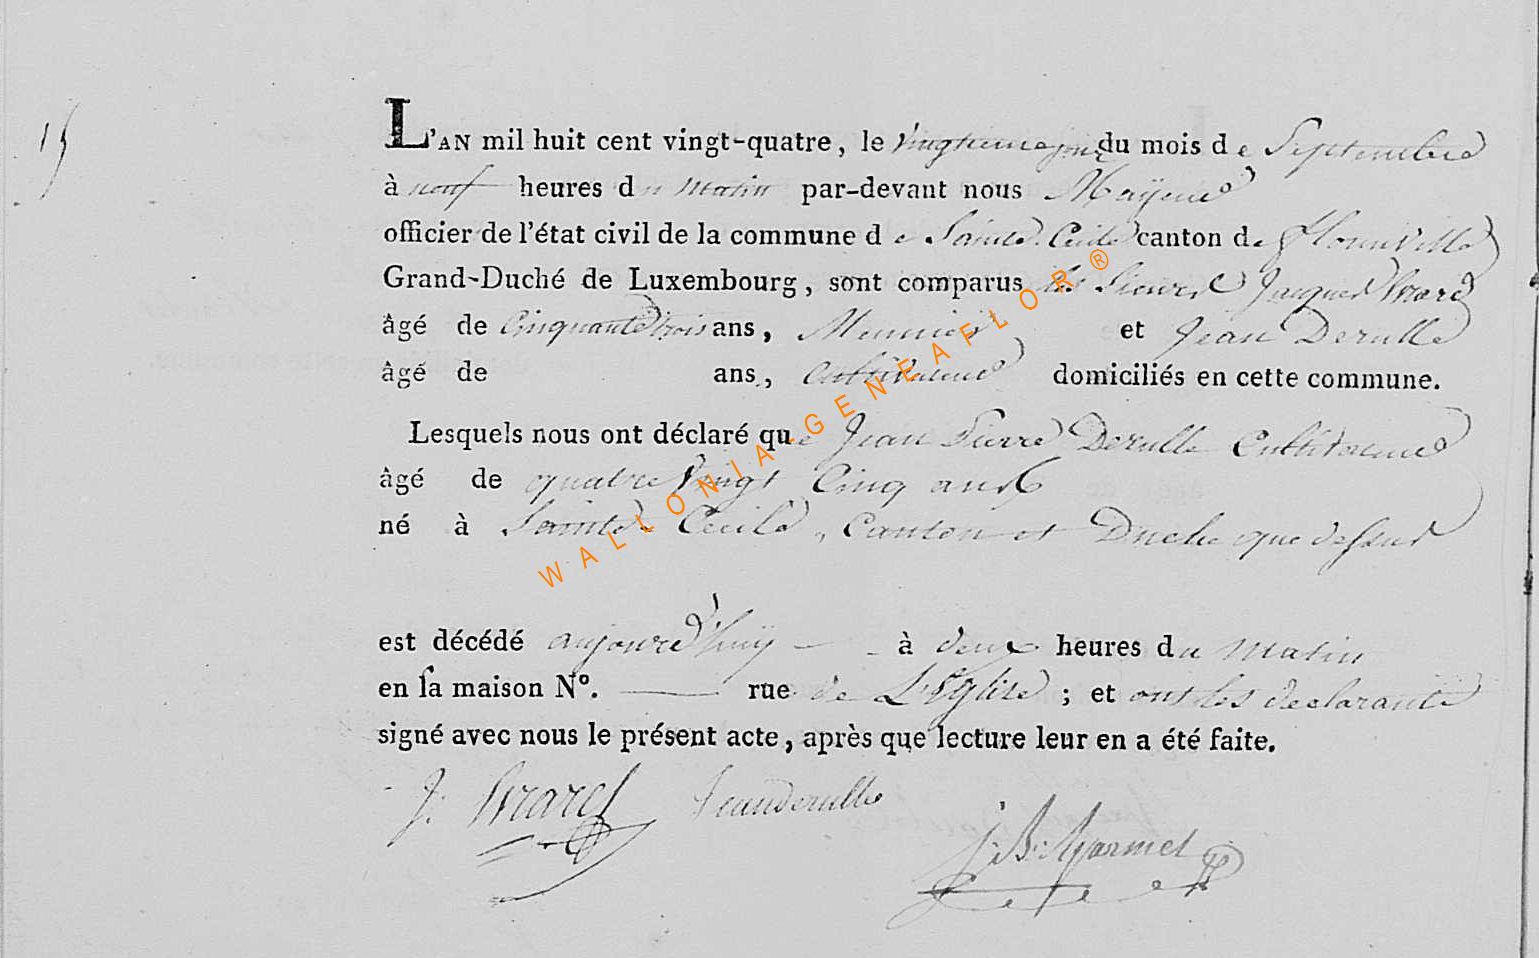 15
L'AN mil huit cent vingt-quatre, le Vingtieme jour du mois de Septembre
à neuf heures du matin par-devant nous Mayeur
officier de l'état civil de la commune de Sainte Cecile canton de Florenville
Grand-Duché de Luxembourg, sont comparus les Sieurs Jacques Evrard
âgé de Cinquante trois ans, Meunier et Jean Derulle
âgé de ans, Cultivateur domiciliés en cette commune.
Lesquels nous ont déclaré que Jean Pierre Derulle Cultivateur
âgé de quatre Vingt Cinq ans
né à Sainte Cecile, Canton et Duché que dessus
est décédé aujourd'huy à deux heures du Matin
en sa maison N°. rue de L'Eglise ; et ont les declarants
signé avec nous le présent acte, après que lecture leur en a été faite.
J. Jean derulle J: B: Marmet
WALLONIA-GENEAFLOR®